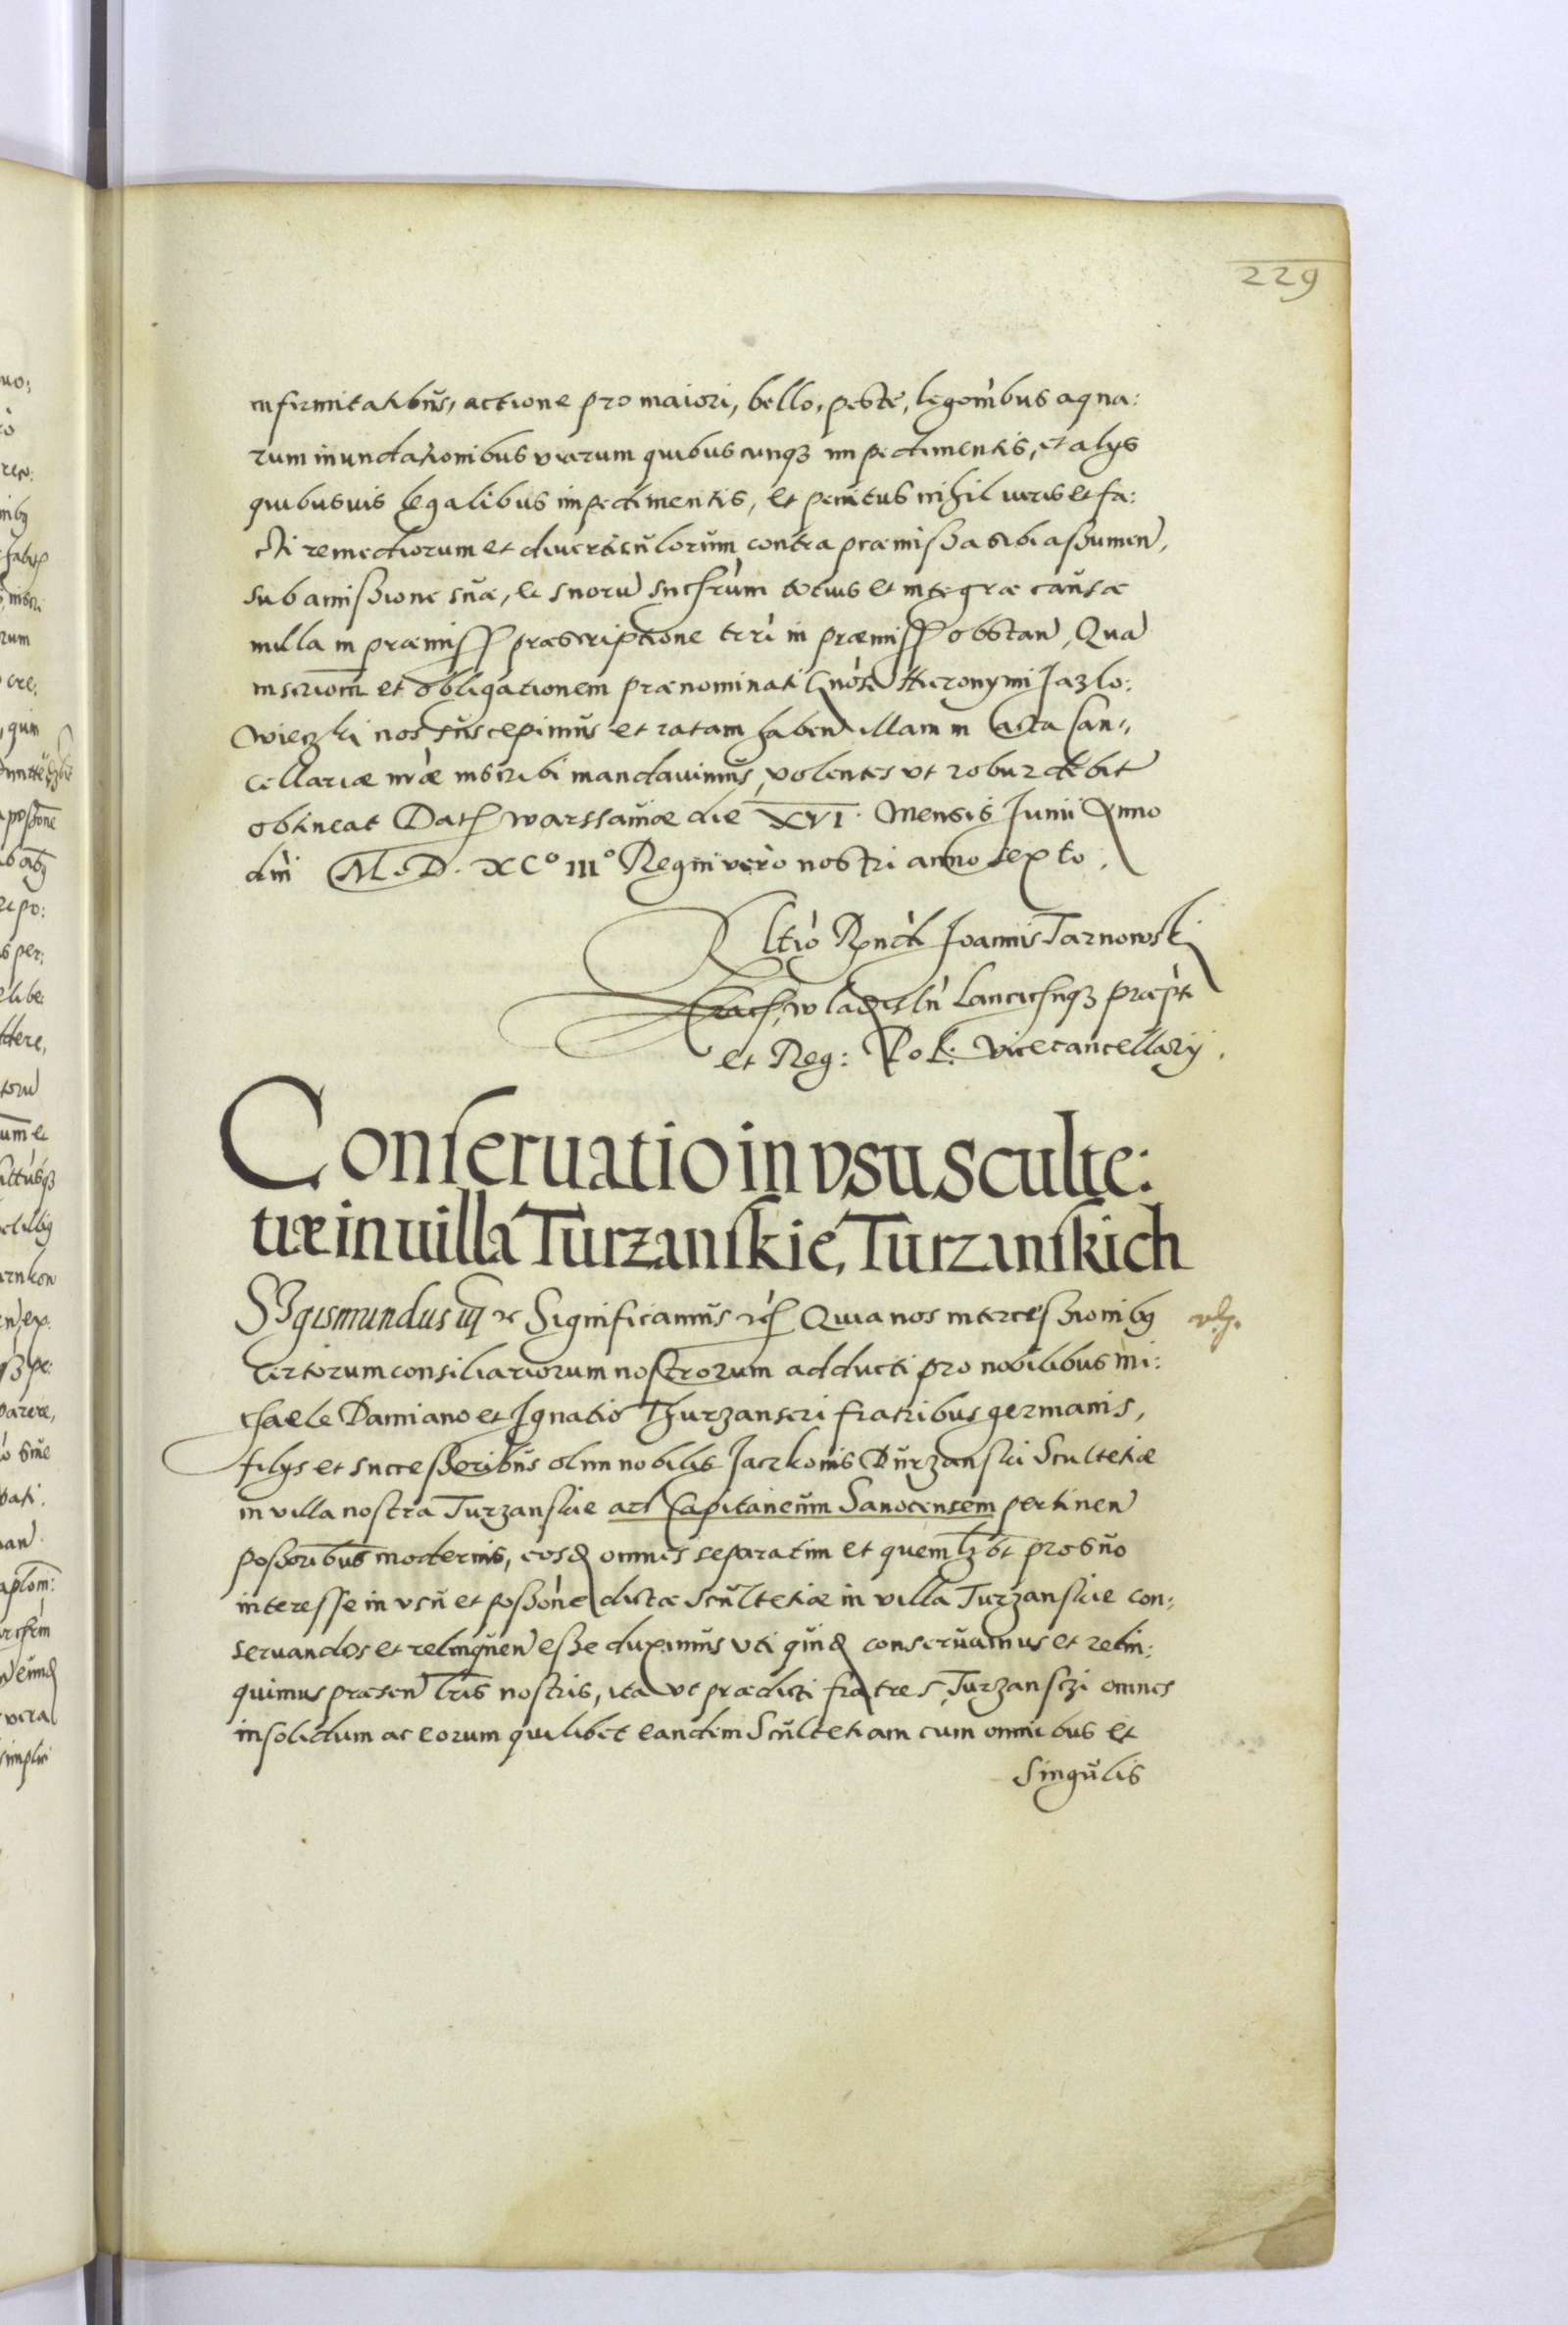 229
infirmitatibus, actione pro maiori, bello, peste, legoibus aqua:
rum inundationibus viarum quibuscunq3 impedimentis, et alys
quibusuis legalibus impedimentis, et penitus nihil iuris et fa:
cti remediorum et diverticulorum contra præmissa sibi assumen,
sub amissione suæ, et suorũ sucessrum totius et integræ causæ
nulla in præmiss præscriptione trri in præmiss obstan, Quã
inscriom et obligationem prænominati Gnosi Hieronymi Jazlo:
wieczki nos suscepimus et ratam haben illam in acta Can:
cellariæ nræ inscribi mandauimus, volentes vt robur debit
obtineat Dat Warssaviæ die XVI. Mensis Junii Anno
dni M. D. XC° III° Regni vero nostri anno sexto.
Rltio Rndi Joannis Tarnowski
Crac, wladislñ Lancicñq3 præpti
et Reg: Pol: Vicecancellarij.
Conseruatio in vsu Sculte:
tiæ in uilla Turzanskie, Turzanskich
Sigismundus iij &c Significamus &c Quia nos intercessionibg
certorum consiliariorum nostrorum adducti pro nobilibus Mi:
chaele Damiano et Ignatio Thurzansci fratribus germanis,
filys et successoribus olim nobilis Jaczkonis Durzanski Scultetiæ
in villa nostra Turzanskie ad Capitaneum Sanocensem pertinen
possoribus modernis, eosd omnes separatim et quemlzbt pro suo
interesse in vsu et possone dictæ Scultetiæ in villa Turzanskie con:
seruandos et relinquen esse duximus vti quid conseruamus et relin:
quimus præsen lris nostris, ita vt prædicti fratres Turzansczi omnes
insolidum ac eorum quilibet eandem Scultetiam cum omnibus et
Singulis